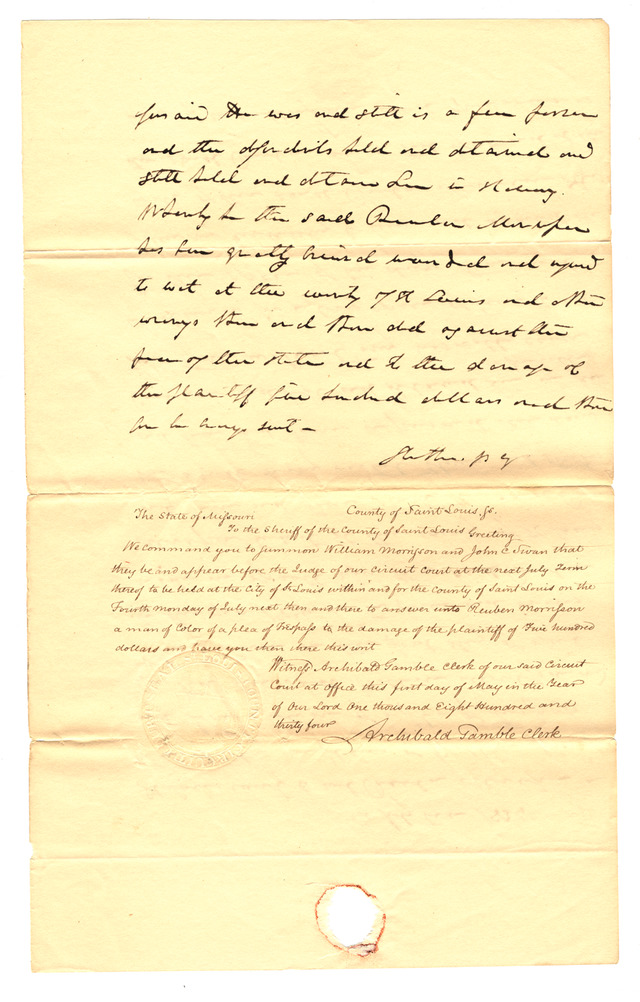 said He was and still is a free person
and the defendants held and detained and
still held and detain him in slavery.
Whereby he the said Reuben Morrison
has been greatly bruised wounded and injured
to wit at the county of St Louis and other
wrongs then and there did against the
peace of the state and to the damage of
the plaintiff five hundred dollars and there
for he brings suit –
The State of Mifsouri County of Saint Louis, Ss.
To the Sheriff of the County of Saint Louis Greeting
We command you to summon William Morrifson and John C Swan that
they be and appear before the Judge of our Circuit Court at the next July Term
thereof to be held at the City of St Louis within and for the County of Saint Louis on the
Fourth monday of July next then and there to answer unto Reuben Morrifson
a man of Color of a plea of Trespafs to the damage of the plaintiff of Five Hundred
dollars and have you then there this writ
Witnefs Archibald Gamble Clerk of our said Circuit
Court at office this first day of May in the Year
of Our Lord One thousand Eight Hundred and
thirty four
Archibald Gamble Clerk